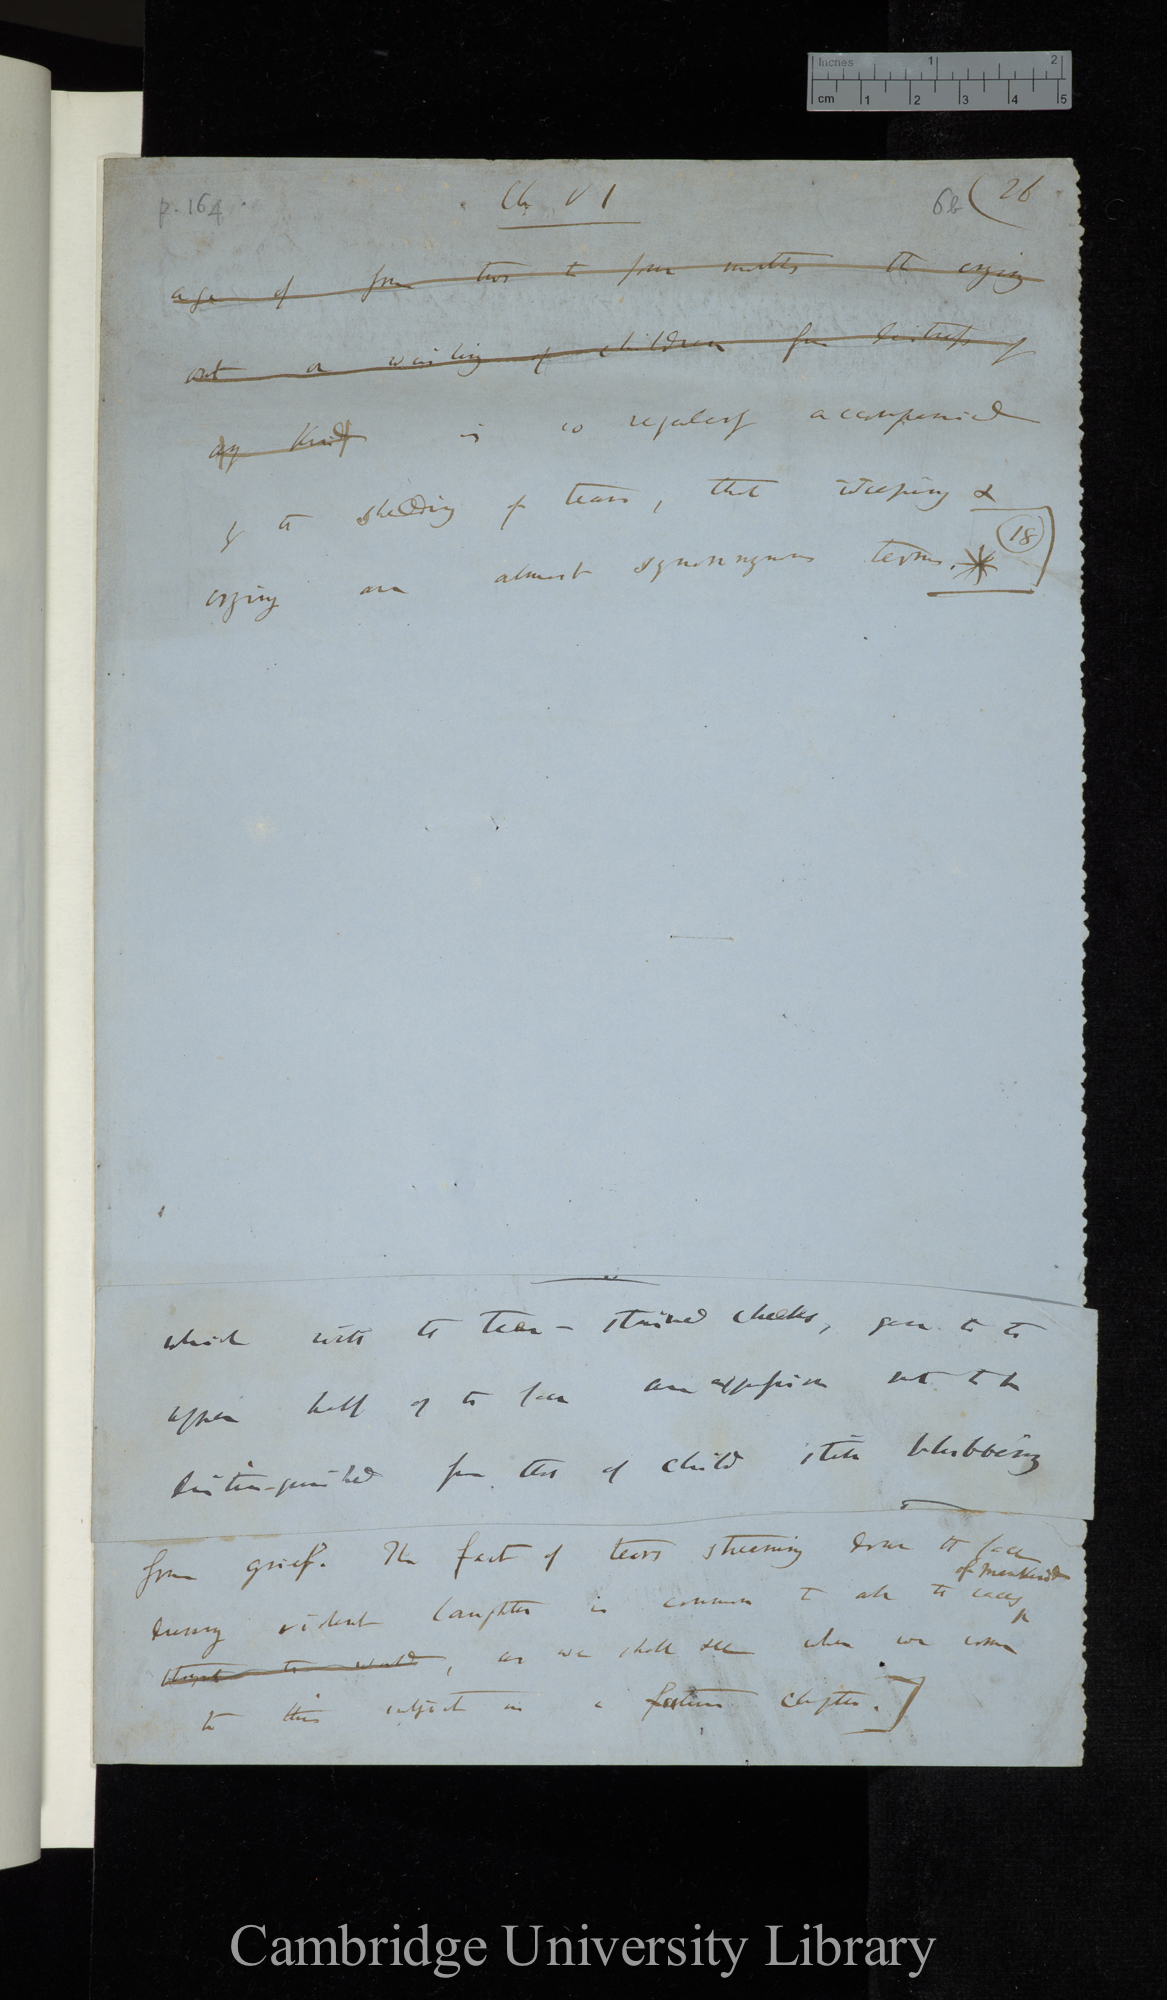 Inches 1 2
cm 1 2 3 4 5
p. 164 Ch V I 6b (26
age of from two to four months the crying
out or wailing of children from distress of
any kind is so regularly accompanied
by the shedding of tears, that weeping &
(18)
crying are almost synonymous terms.*
which with the tear-stained cheeks, gave to the
upper half of the face an expression not to be
distinguished from that of child still blubbering
from grief. The fact of tears streaming down the face
of mankind
during violent laughter is common to all the races
, as we shall see when we come
to this subject in a future chapter.]
Cambridge University Library